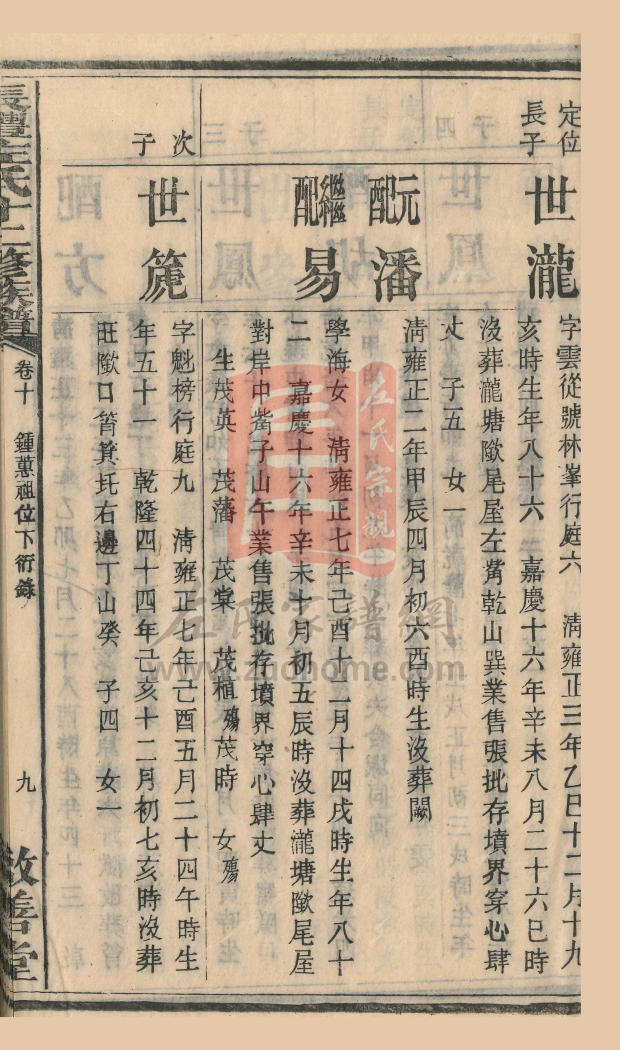 定位
長子
世瀧
字雲從號林峯行庭六 淸雍正三年乙巳十二月十九
亥時生年八十六 嘉慶十六年辛未八月二十六巳時
沒葬瀧塘𡺸尾屋左觜乾山巽業售張批存墳界穿心肆
丈 子五 女一
元配潘
淸雍正二年甲辰四月初六酉時生沒葬闕
繼配易
學海女 淸雍正七年己酉十二月十四戌時生年八十
二 嘉慶十六年辛未十月初五辰時沒葬瀧塘尾屋
對岸中觜子山午業售張批存墳界穿心肆丈
生茂英 茂藩 茂棠 茂植殤茂時 女殤
次子
世箎
字魁榜行庭九 淸雍正七年己酉五月二十四午時生
年五十一 乾隆四十四年己亥十二月初七亥時沒葬
旺口筲箕圫右邊丁山癸 子四 女一
長醴左氏十二修族譜
卷十 鍾蕙祖位下衍錄
九
敦善堂
左氏宗親
左氏家譜網
www.zuohome.com